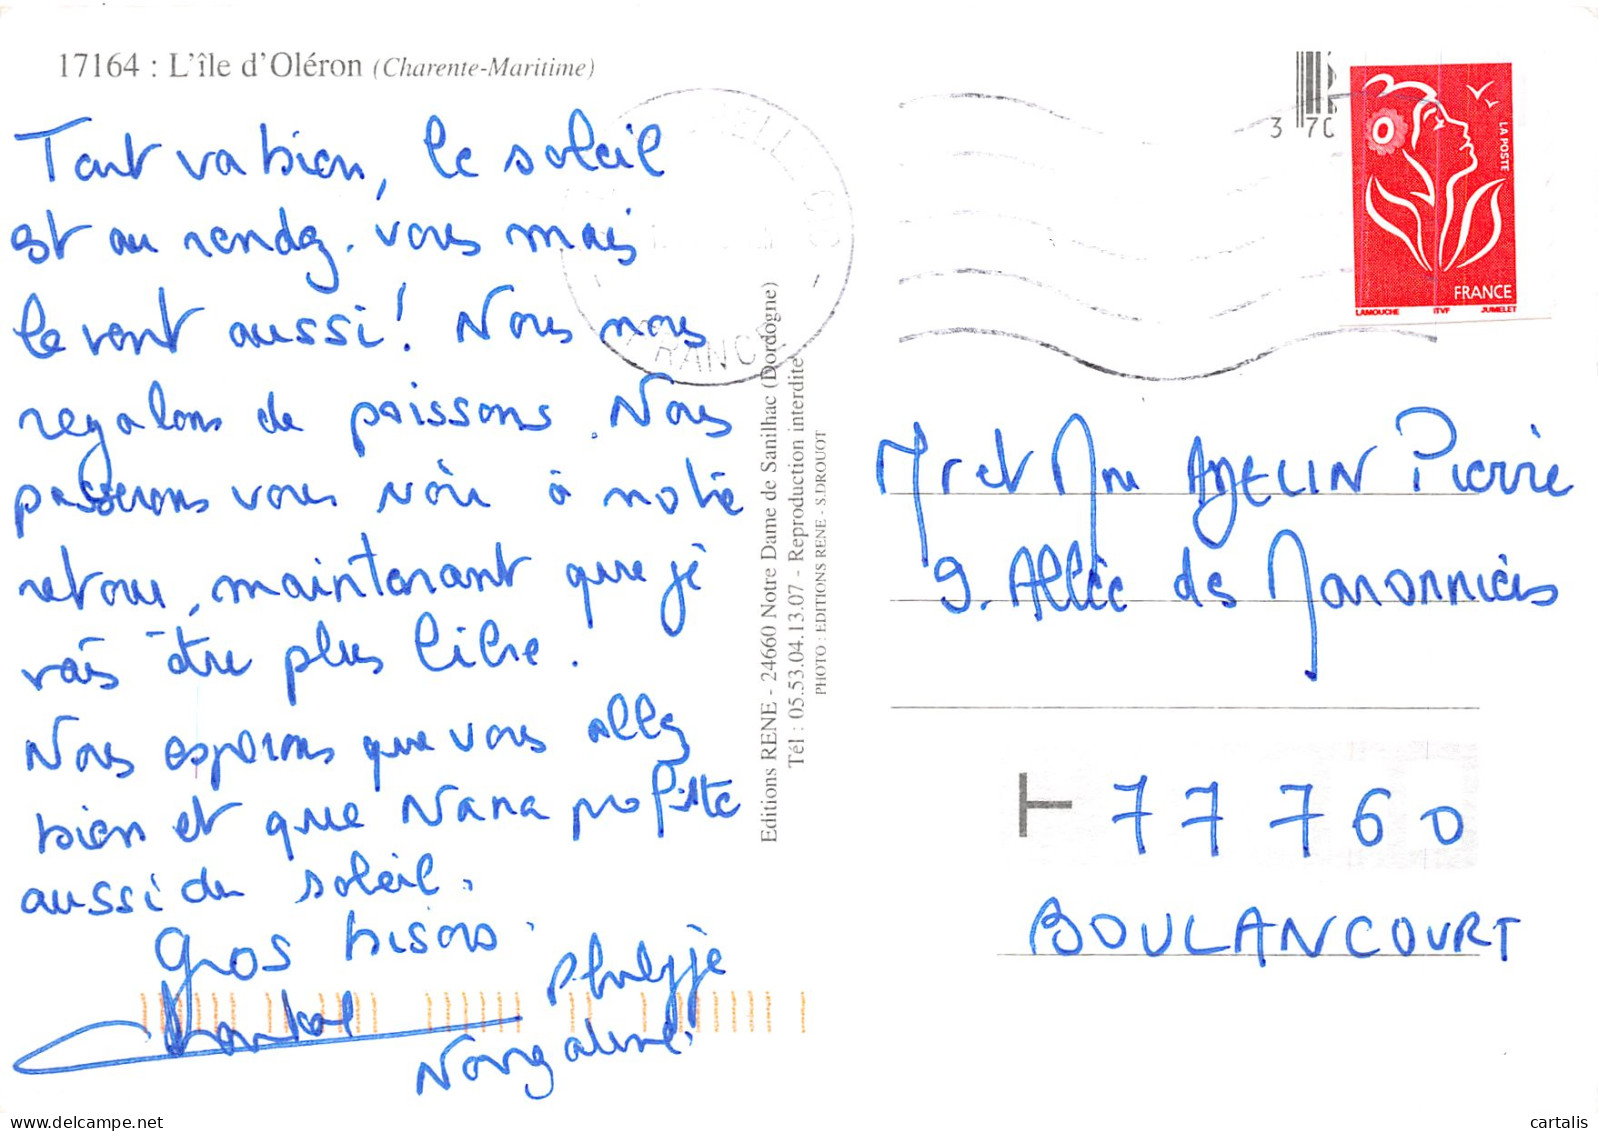 17164 : L'île d'Oléron (Charente-Maritime)
Tout va bien, le soleil
est au rendez-vous mais
le vent aussi ! Nous nous
regalons de poissons. Nous
passerons vous voir à notre
retour, maintenant que je
vais être plus libre.
Nous esperons que vous allez
bien et que Nana profite
aussi du soleil.
Gros bisous.
Chantal
Philippe
Editions RENE - 24660 Notre Dame de Sanilhac (Dordogne)
Tél : 05.53.04.13.07 - Reproduction interdite
PHOTO : EDITIONS RENE - S.DROUOT
FRANCE
3 7C
LA POSTE
FRANCE
LAMOUCHE ITVF JUMELET
Mr et Mme AZELIN Pierre
9. Allée des Maronniers
T 77760
BOULANCOURT
cartalis